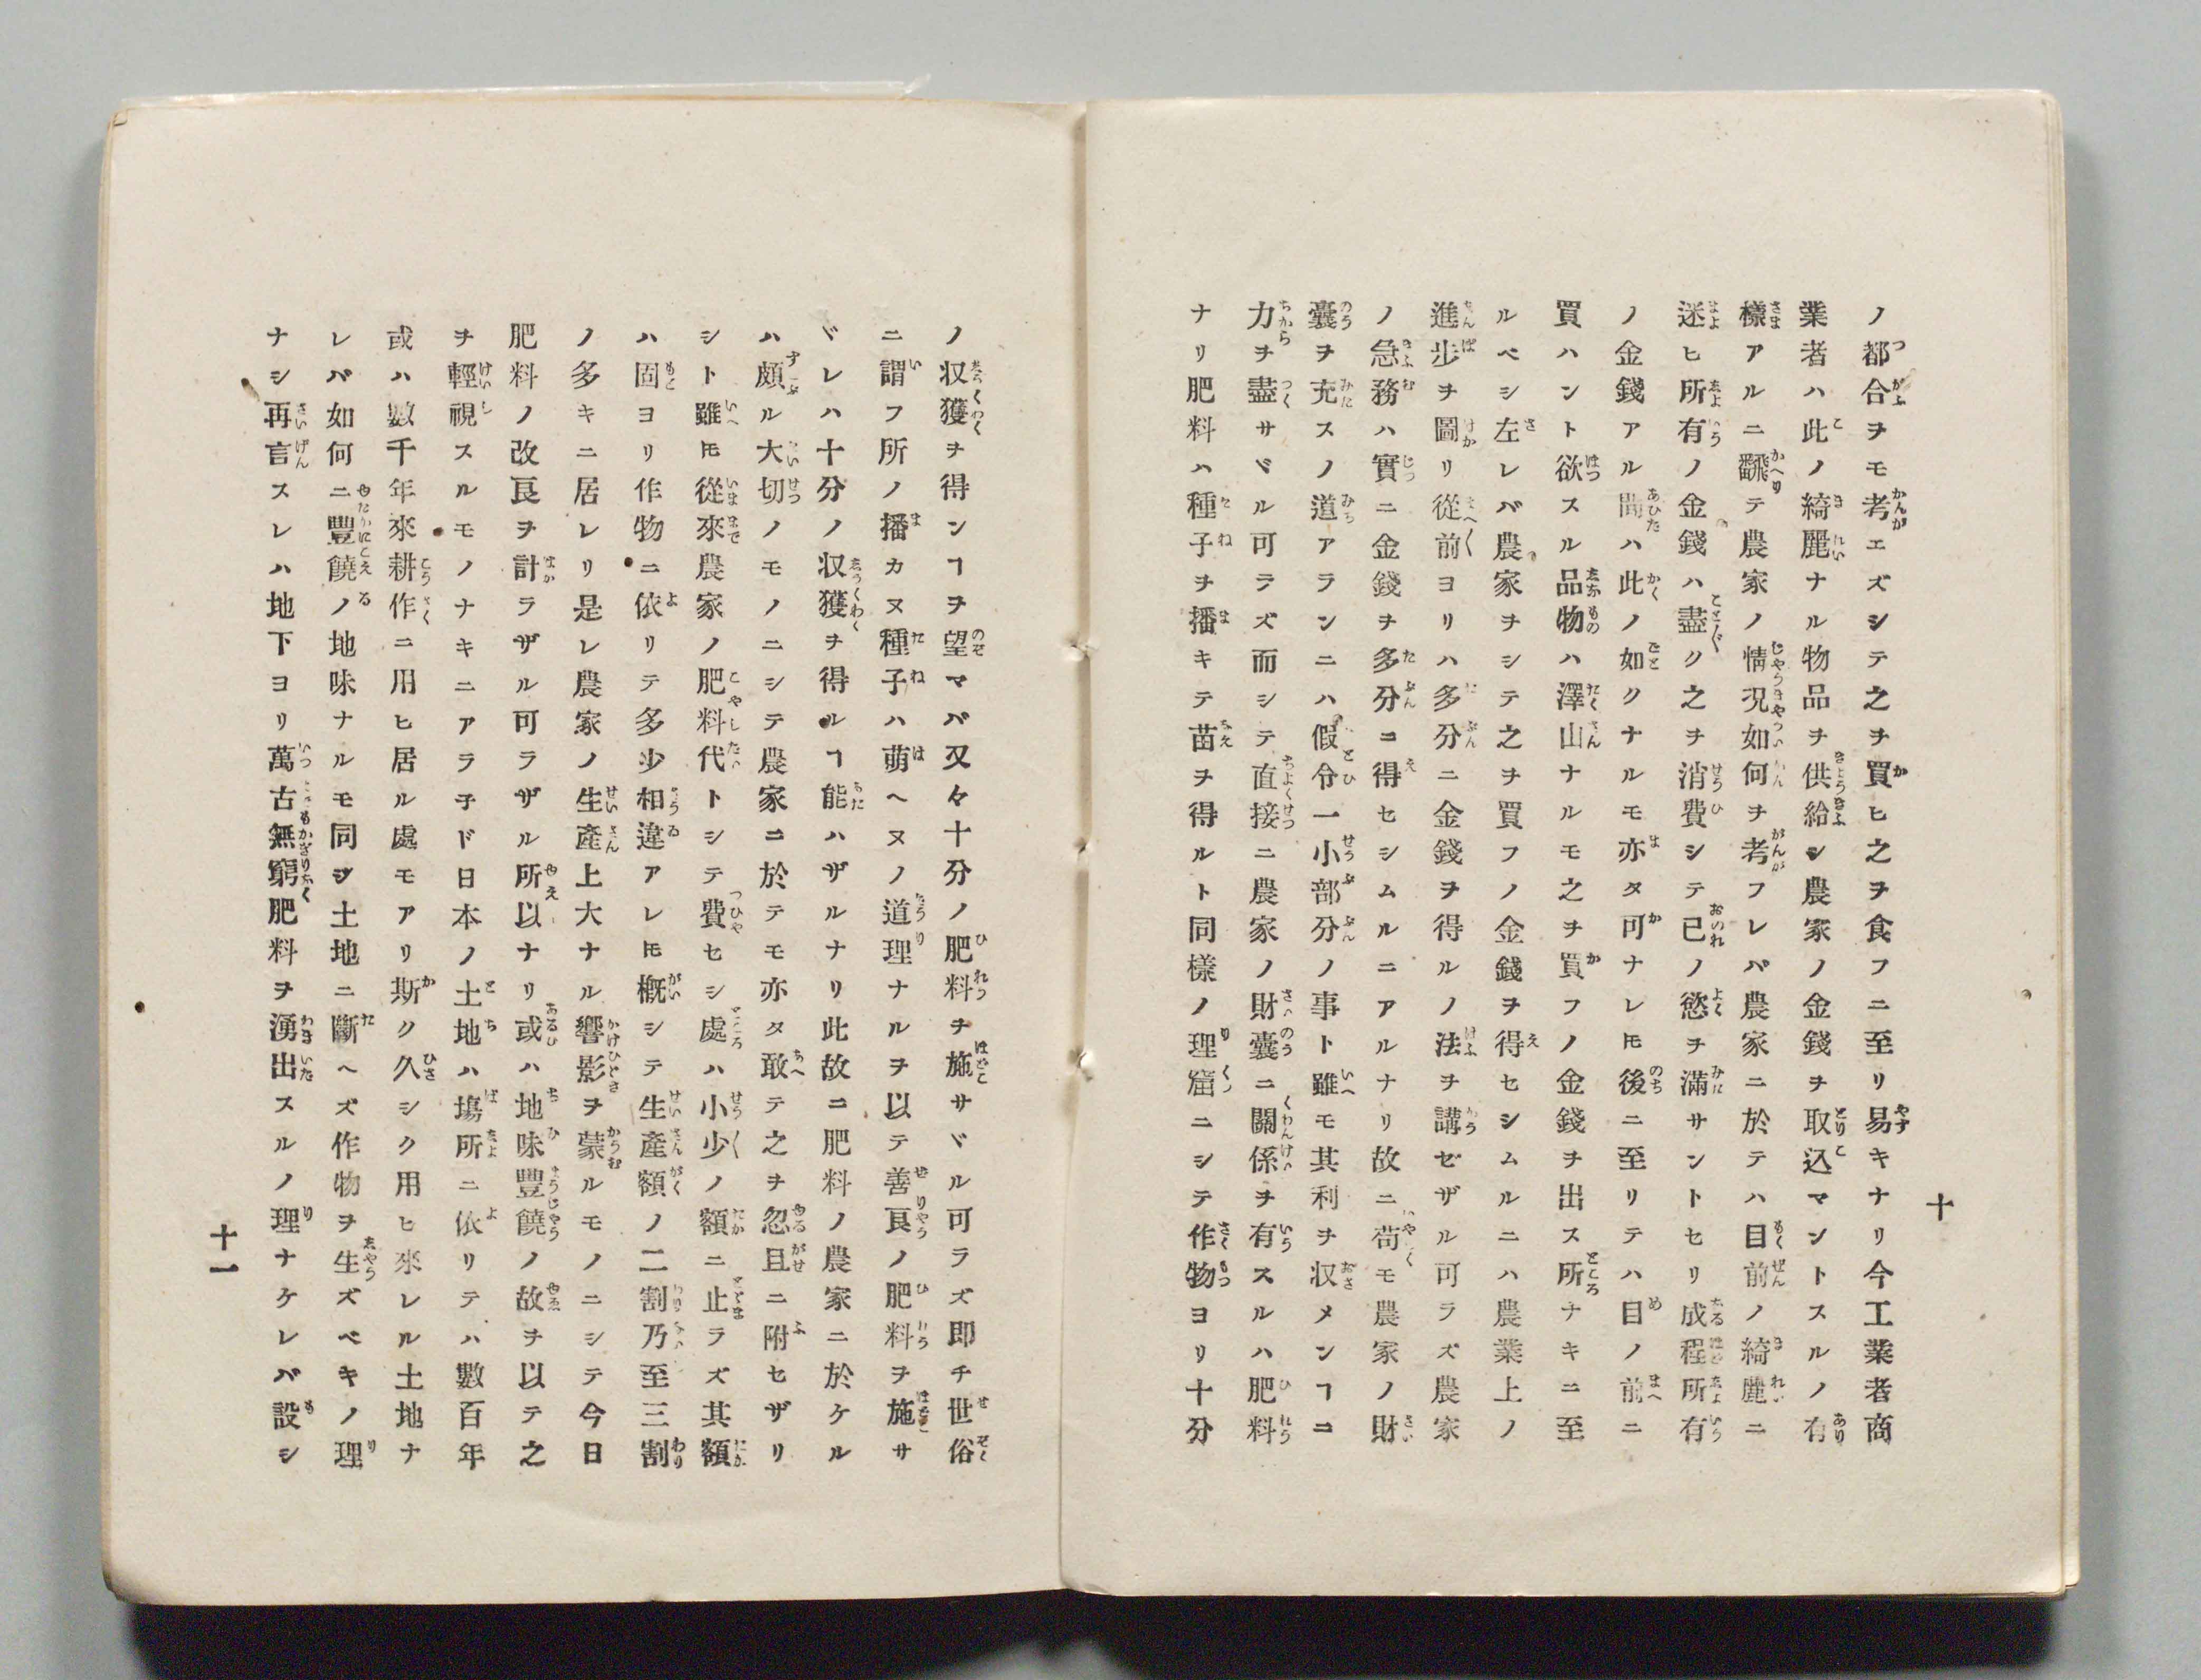 ノ都合ヲモ考エズシテ之ヲ買ヒ之ヲ食フニ至リ易キナリ今工業者商
業者ハ此ノ綺麗ナル物品ヲ供給シ農家ノ金錢ヲ取込マントスルノ有
樣アルニ飜テ農家ノ情况如何ヲ考フレバ農家ニ於テハ目前ノ綺麗ニ
迷ヒ所有ノ金錢ハ盡ク之ヲ消費シテ已ノ慾ヲ滿サントセリ成程所有
ノ金錢アル間ハ此ノ如クナルモ亦タ可ナレ𪜈後ニ至リテハ目ノ前ニ
買ハント欲スル品物ハ澤山ナルモ之ヲ買フノ金錢ヲ出ス所ナキニ至
ルベシ左レバ農家ヲシテ之ヲ買フノ金錢ヲ得セシムルニハ農業上ノ
進步ヲ圖リ從前ヨリハ多分ニ金錢ヲ得ルノ法ヲ講ゼザル可ラズ農家
ノ急務ハ實ニ金錢ヲ多分ニ得セシムルニアルナリ故ニ苟モ農家ノ財
囊ヲ充スノ道アランニハ假令一小部分ノ事ト雖モ其利ヲ収メンヿニ
力ヲ盡サヾル可ラズ而シテ直接ニ農家ノ財囊ニ關係ヲ有スルハ肥料
ナリ肥料ハ種子ヲ播キテ苗ヲ得ルト同樣ノ理窟ニシテ作物ヨリ十分
十
ノ収獲ヲ得ンヿヲ望マバ又々十分ノ肥料ヲ施サヾル可ラズ即チ世俗
ニ謂フ所ノ播カヌ種子ハ萠ヘヌノ道理ナルヲ以テ善良ノ肥料ヲ施サ
ヾレハ十分ノ収獲ヲ得ルヿ能ハザルナリ此故ニ肥料ノ農家ニ於ケル
ハ頗ル大切ノモノニシテ農家ニ於テモ亦タ敢テ之ヲ忽且ニ附セザリ
シト雖𪜈從來農家ノ肥料代トシテ費セシ處ハ小少ノ額ニ止ラズ其額
ハ固ヨリ作物ニ依リテ多少相違アレ𪜈槪シテ生產額ノ二割乃至三割
ノ多キニ居レリ是レ農家ノ生產上大ナル響影ヲ蒙ルモノニシテ今日
肥料ノ改良ヲ計ラザル可ラザル所以ナリ或ハ地味豐饒ノ故ヲ以テ之
ヲ輕視スルモノナキニアラ子ド日本ノ土地ハ塲所ニ依リテハ數百年
或ハ數千年來耕作ニ用ヒ居ル處モアリ斯ク久シク用ヒ來レル土地ナ
レバ如何ニ豐饒ノ地味ナルモ同ジ土地ニ斷ヘズ作物ヲ生ズベキノ理
ナシ再言スレハ地下ヨリ萬古無窮肥料ヲ湧出スルノ理ナケレバ設シ
十一